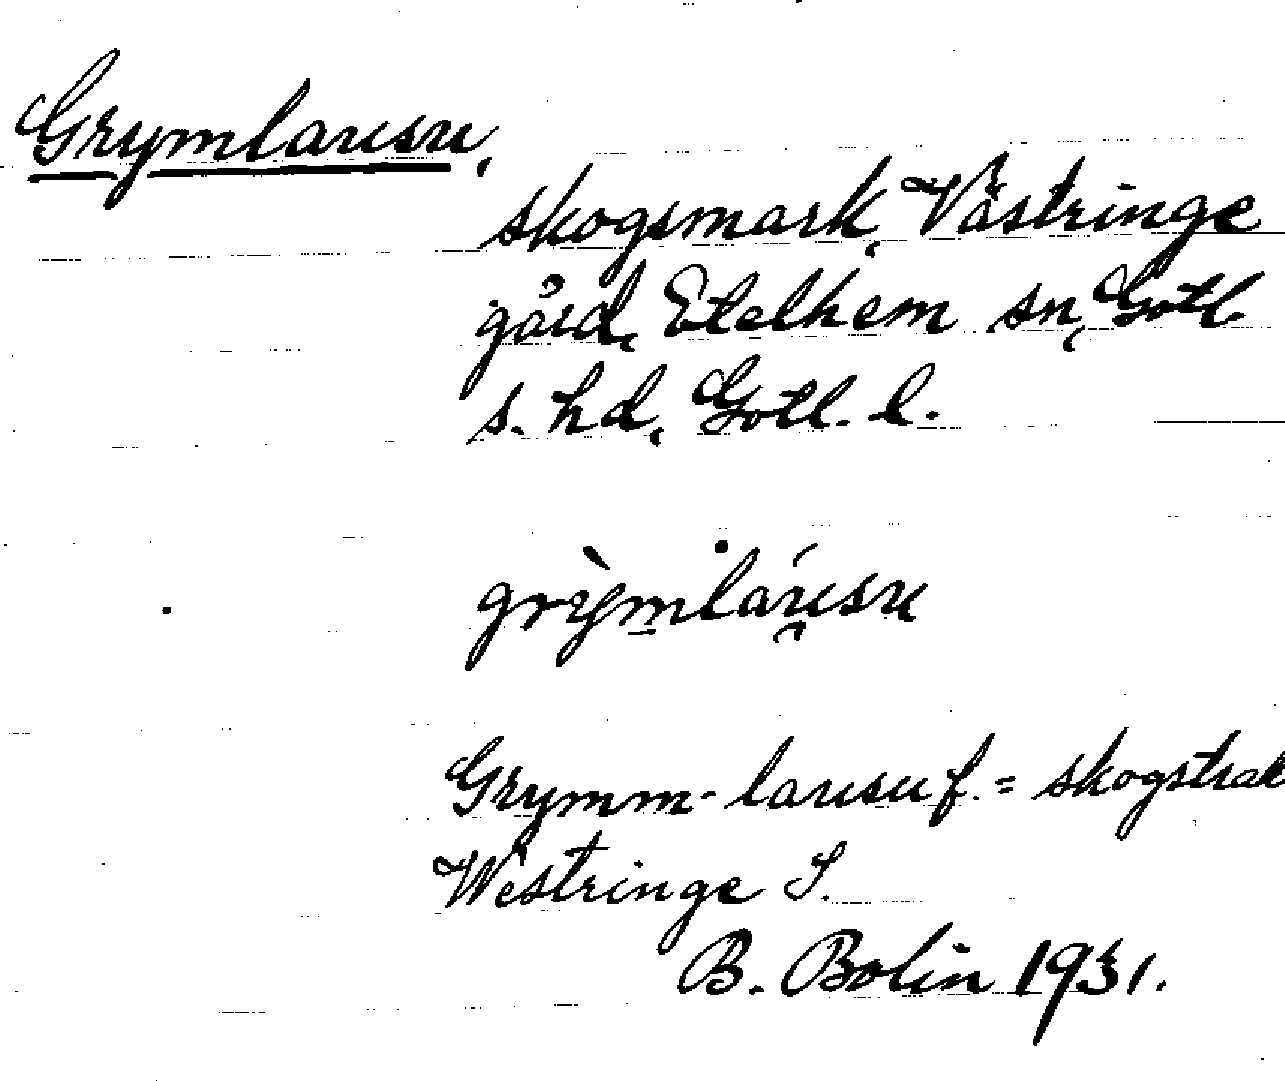 Grymlausu,
skogsmark, Västringe
gård, Etelhem sn, Gotl.
s. hd, Gotl. l.
grỳmláusu
Grymm-lausu f. = skogstrak
Westringe S.
B. Bolin 1931.